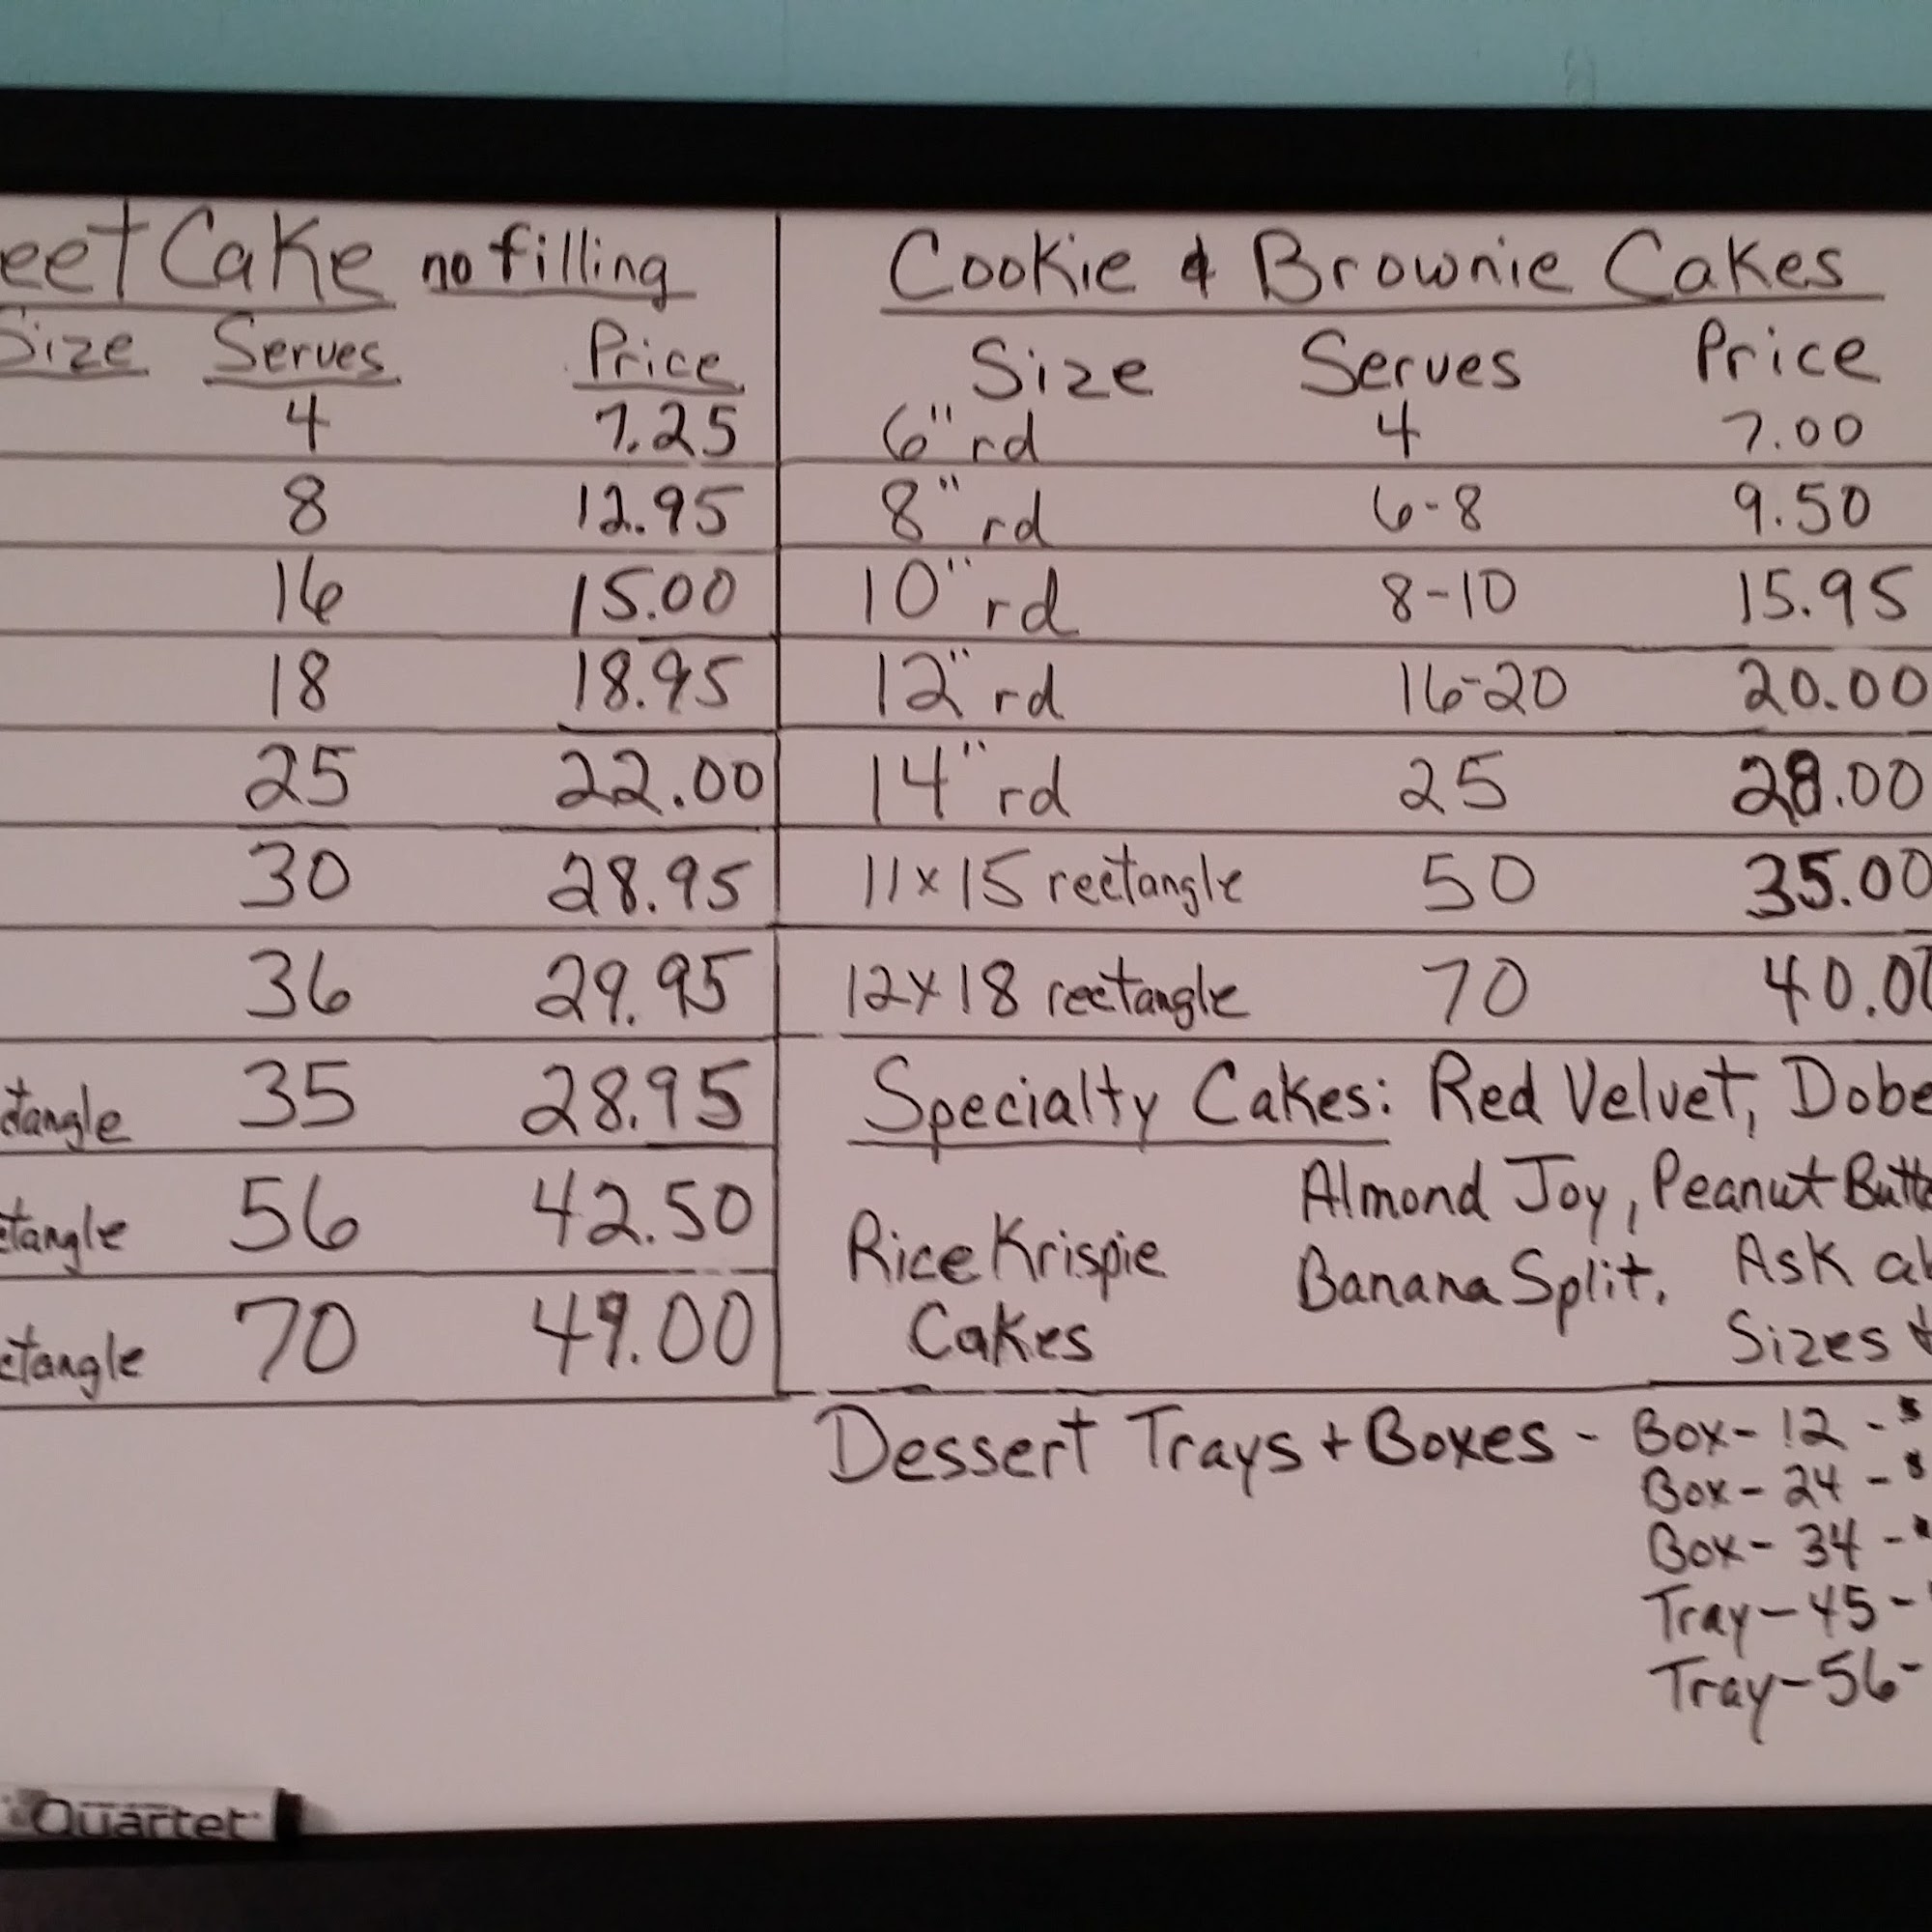 eet Cake no filling
Size Serves Price
4 7.25
8 12.95
16 15.00
18 18.95
25 22.00
30 28.95
36 29.95
tangle 35 28.95
tangle 56 42.50
ctangle 70 49.00
Cookie & Brownie Cakes
Size Serves Price
6" rd 4 7.00
8" rd 6-8 9.50
10" rd 8-10 15.95
12" rd 16-20 20.00
14" rd 25 28.00
11x15 rectangle 50 35.00
12x18 rectangle 70 40.00
Specialty Cakes: Red Velvet, Dobe
Almond Joy, Peanut Butte
Banana Split. Ask ab
Sizes &
Rice Krispie
Cakes
Dessert Trays + Boxes - Box - 12 - $
Box - 24 - $
Box - 34 -
Tray - 45 -
Tray - 56 -
Quartet